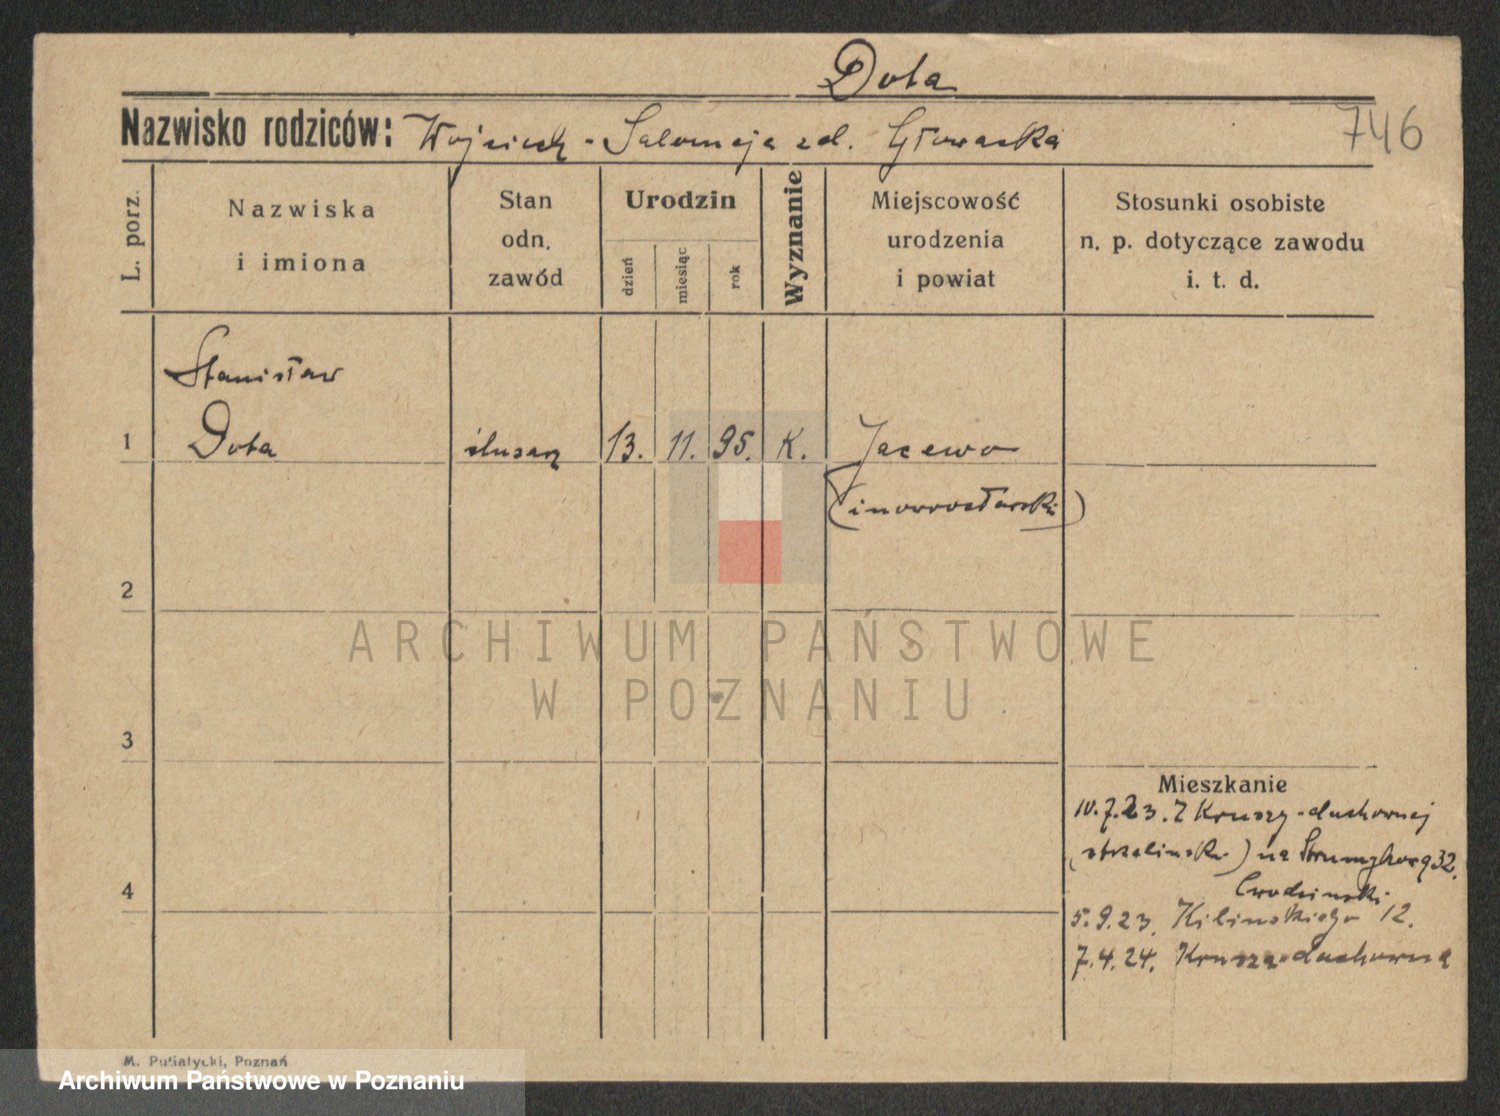 Dota
Nazwisko rodziców: Wojciech - Salomeja zd. Głowacka
746
L. porz.
Nazwiska
i imiona
Stan
odn.
zawód
Urodzin
dzień
miesiąc
rok
Wyznanie
Miejscowość
urodzenia
i powiat
Stosunki osobiste
n. p. dotyczące zawodu
i. t. d.
Stanisław
1 Dota ślusarz 13. 11. 95. K. Jacewo
(inowrocławski)
2
ARCHIWUM PAŃSTWOWE
W POZNANIU
3
Mieszkanie
10.7.23. Z Kruszy-duchownej
(strzeliński) na 32.
4
5.9.23. Kilińskiego 12.
7.4.24. Krusza-duchowna
M. Putiatycki, Poznań
Archiwum Państwowe w Poznaniu